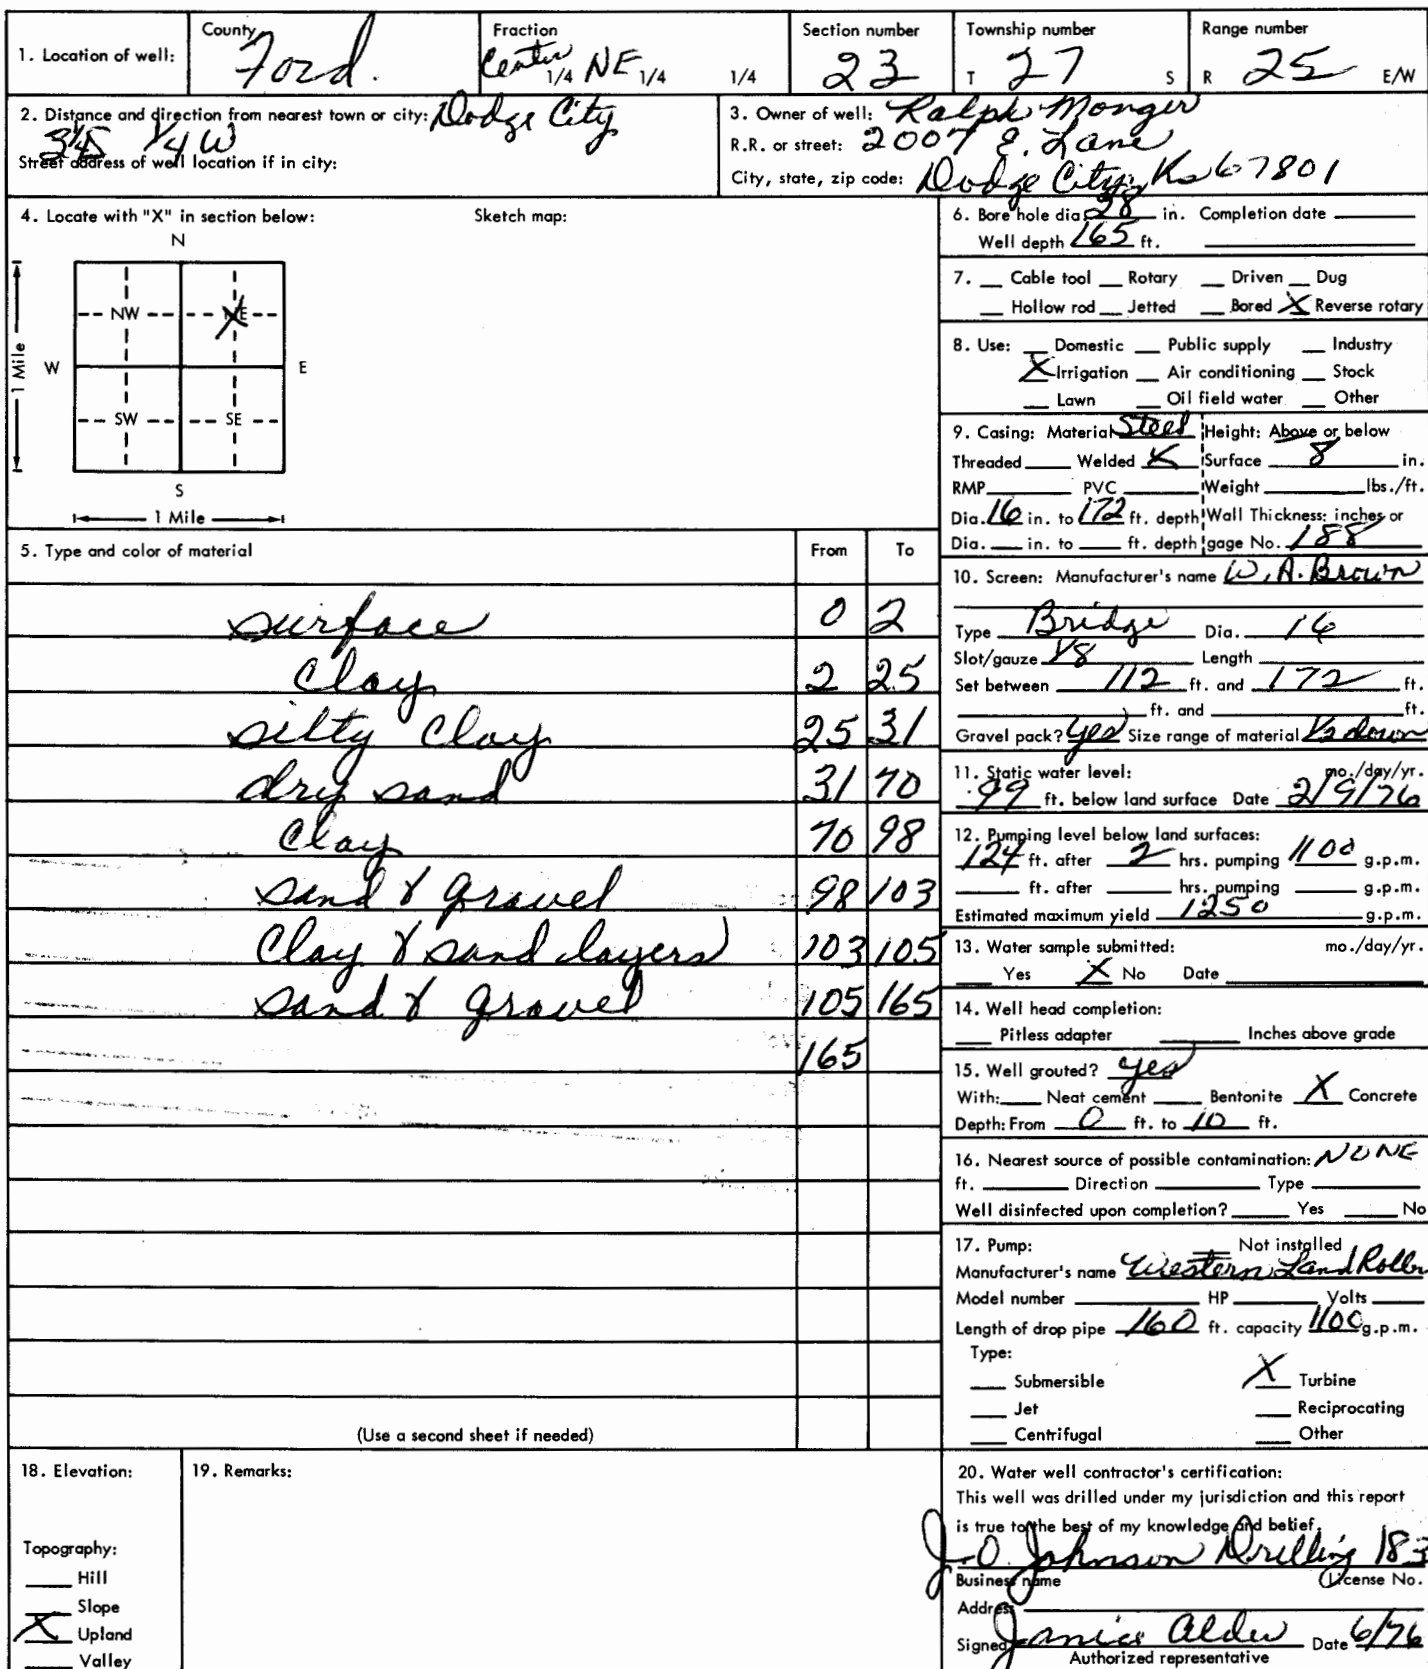 1. Location of well: County Ford. Fraction Center 1/4 NE 1/4 1/4 Section number 23 Township number T 27 S Range number R 25 E/W
2. Distance and direction from nearest town or city: Dodge City
1/4 W
Street address of well location if in city:
3. Owner of well: Ralph Monger
R.R. or street: 2007 E. Lane
City, state, zip code: Dodge City, Ks 67801
4. Locate with "X" in section below: Sketch map:
N
NW NE
W E
1 Mile
SW SE
S
1 Mile
5. Type and color of material From To
surface 0 2
Clay 2 25
silty Clay 25 31
dry sand 31 70
Clay 70 98
sand & gravel 98 103
Clay & sand layers 103 105
sand & gravel 105 165
165
(Use a second sheet if needed)
6. Bore hole dia 28 in. Completion date
Well depth 165 ft.
7. Cable tool Rotary Driven Dug
Hollow rod Jetted Bored X Reverse rotary
8. Use: Domestic Public supply Industry
X Irrigation Air conditioning Stock
Lawn Oil field water Other
9. Casing: Material Steel Height: Above or below
Threaded Welded X Surface 8 in.
RMP PVC Weight lbs./ft.
Dia. 16 in. to 172 ft. depth Wall Thickness: inches or
Dia. in. to ft. depth gage No. 188
10. Screen: Manufacturer's name W.A. Brown
Type Bridge Dia. 16
Slot/gauze 1/8 Length
Set between 112 ft. and 172 ft.
ft. and ft.
Gravel pack? Yes Size range of material 1/2 down
11. Static water level: mo./day/yr.
99 ft. below land surface Date 2/9/76
12. Pumping level below land surfaces:
124 ft. after 2 hrs. pumping 1100 g.p.m.
ft. after hrs. pumping g.p.m.
Estimated maximum yield 1250 g.p.m.
13. Water sample submitted: mo./day/yr.
Yes X No Date
14. Well head completion:
Pitless adapter Inches above grade
15. Well grouted? yes
With: Neat cement Bentonite X Concrete
Depth: From 0 ft. to 10 ft.
16. Nearest source of possible contamination: NONE
ft. Direction Type
Well disinfected upon completion? Yes No
17. Pump: Not installed
Manufacturer's name Western Land Roller
Model number HP Volts
Length of drop pipe 160 ft. capacity 1100 g.p.m.
Type:
Submersible X Turbine
Jet Reciprocating
Centrifugal Other
18. Elevation:
Topography:
Hill
Slope
X Upland
Valley
19. Remarks:
20. Water well contractor's certification:
This well was drilled under my jurisdiction and this report
is true to the best of my knowledge and belief.
J-O Johnson Drilling 183
Business name License No.
Address
Signed Janice Date 6/76
Authorized representative